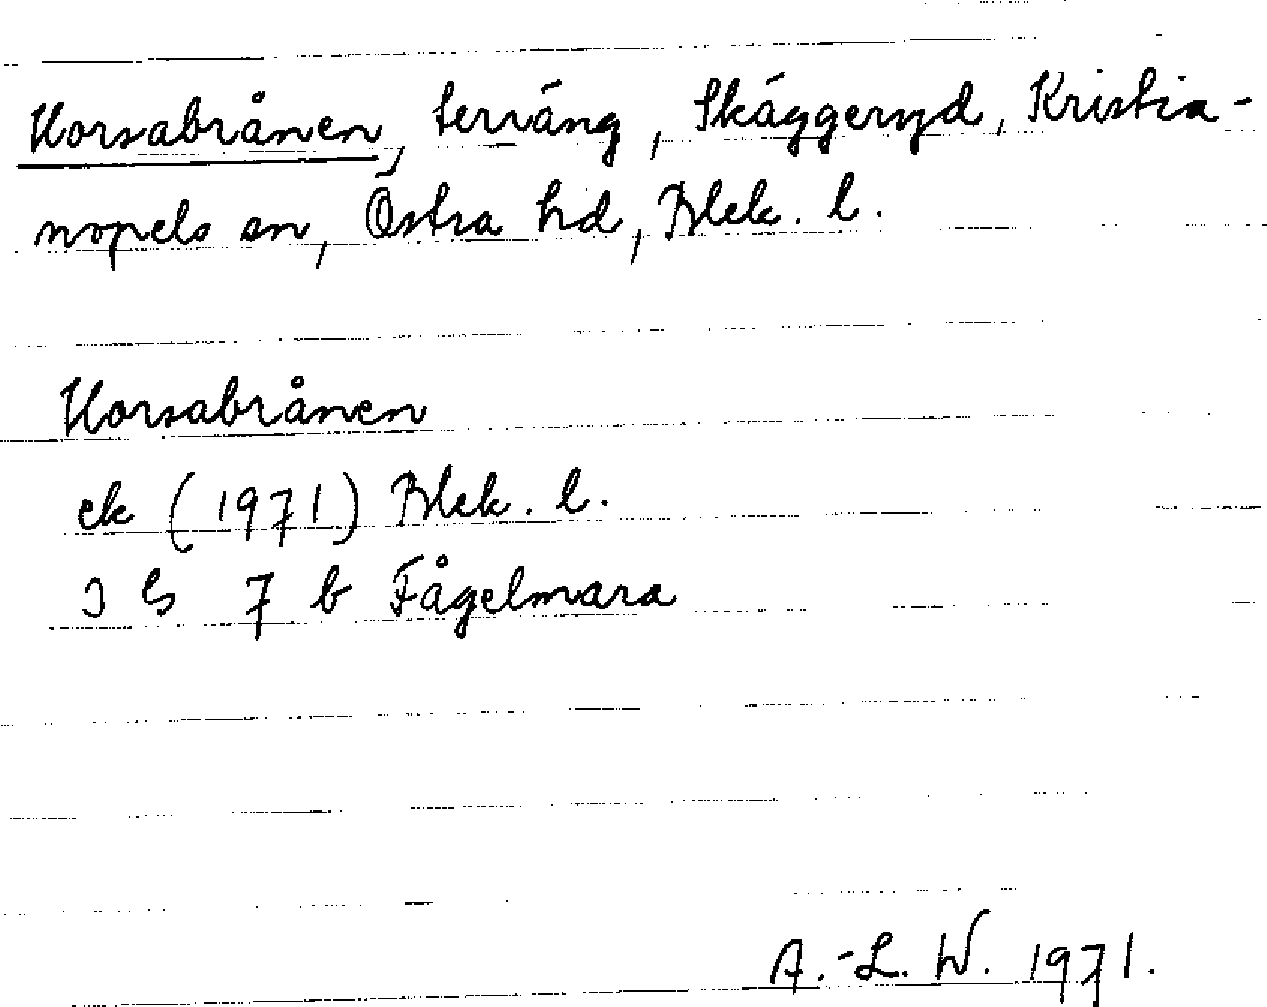 Korsabrånen, terräng, Skäggeryd, Kristia-
nopels sn, Östra hd, Blek. l.
Korsabrånen
ek (1971) Blek. l.
3 G 7 b Fågelmara
A.-L. W. 1971.